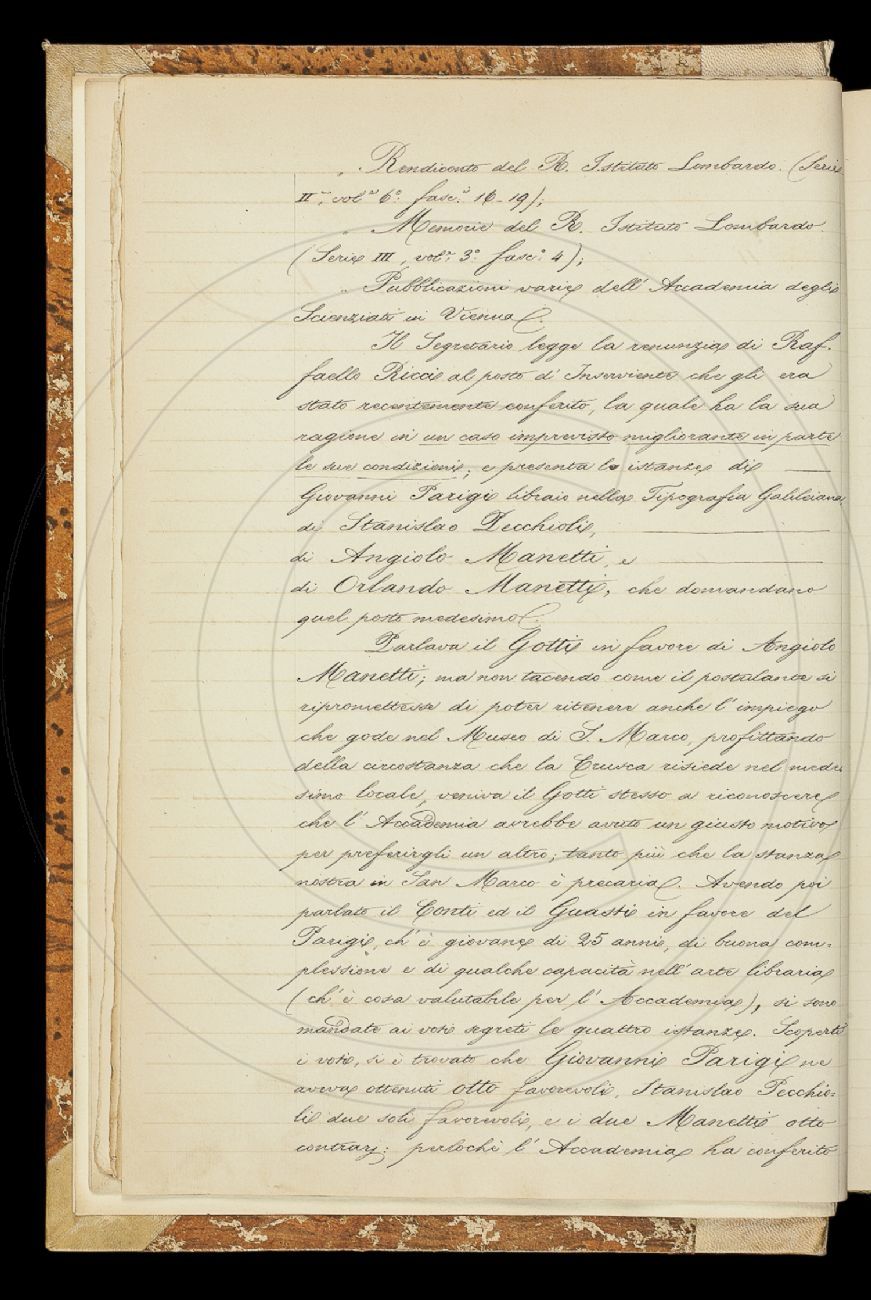 „ Rendiconto del R. Istituto Lombardo. (Serie
II.ª, vol.º 6.º fasc.º 16-19);
„ Memorie del R. Istituto Lombardo
(Serie III, vol.º 3.º fasc.º 4);
„ Pubblicazioni varie dell'Accademia degli
Scienziati in Vienna.
Il Segretario legge la renunzia di Raf-
faello Ricci al posto d'Inserviente che gli era
stato recentemente conferito, la quale ha la sua
ragione in un caso imprevisto migliorante in parte
le sue condizioni; e presenta le istanze di
Giovanni Parigi libraio nella Tipografia Galileiana
di Stanislao Pecchioli,
di Angiolo Manetti, e
di Orlando Manetti, che domandano
quel posto medesimo.
Parlava il Gotti in favore di Angiolo
Manetti; ma non tacendo come il postulante si
ripromettesse di poter ritenere anche l'impiego
che gode nel Museo di S. Marco, profittando
della circostanza che la Crusca risiede nel mede
simo locale, veniva il Gotti stesso a riconoscere
che l'Accademia avrebbe avuto un giusto motivo
per preferirgli un altro; tanto più che la stanza
nostra in San Marco è precaria. Avendo poi
parlato il Conti ed il Guasti in favore del
Parigi, ch'è giovane di 25 anni, di buona com-
plessione e di qualche capacità nell'arte libraria
(ch'è cosa valutabile per l'Accademia), si sono
mandate ai voti segreti le quattro istanze. Scoperti
i voti, si è trovato che Giovanni Parigi ne
aveva ottenuti otto favorevoli, Stanislao Pecchio-
li due soli favorevoli, e i due Manetti otto
contrarj; perlochè l'Accademia ha conferito